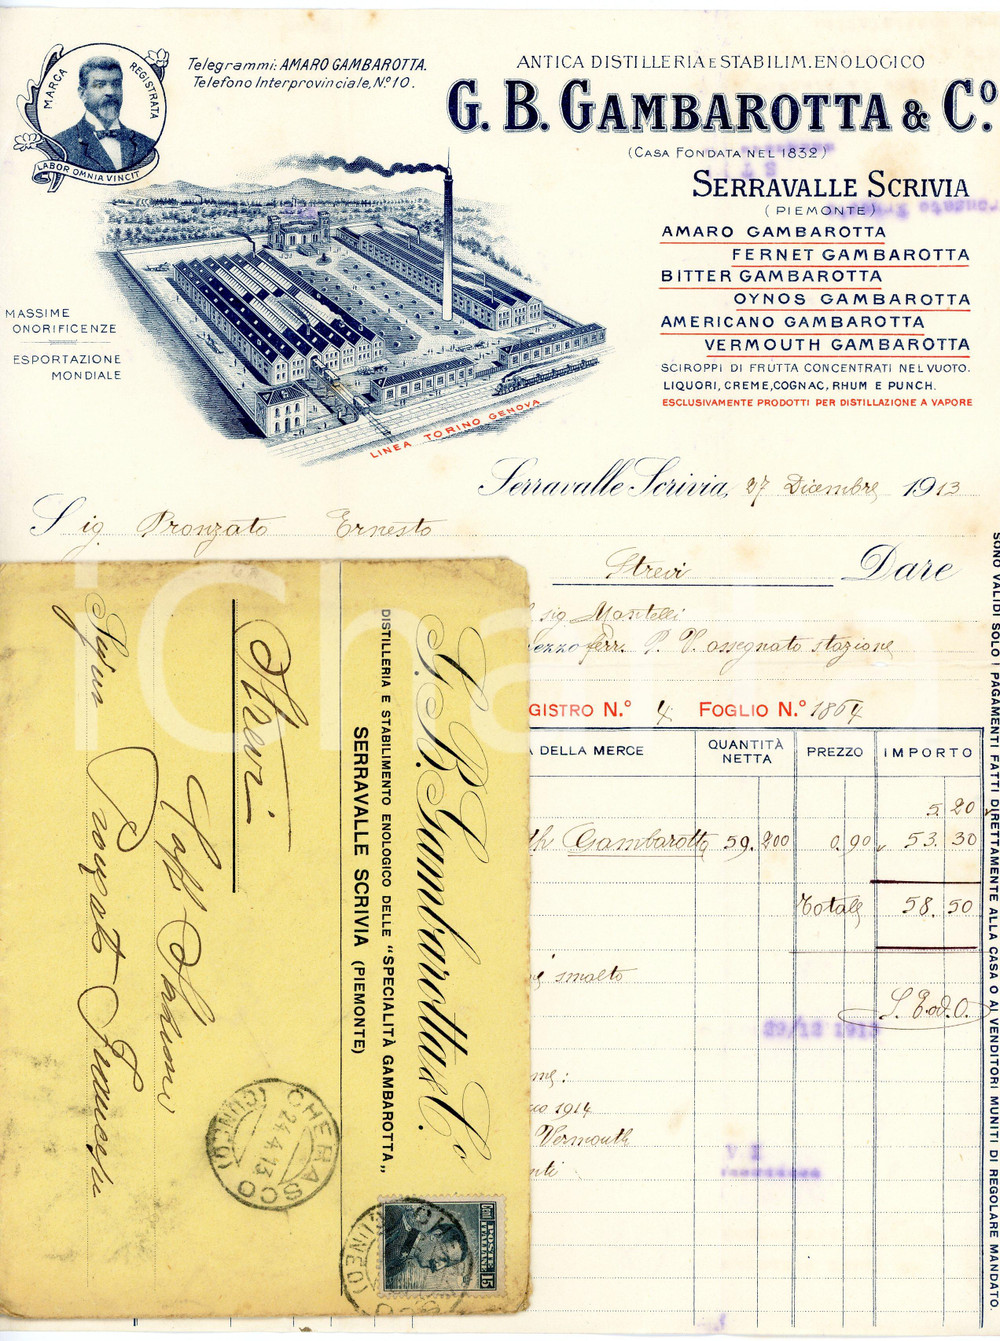 MARCA REGISTRATA
LABOR OMNIA VINCIT
Telegrammi: AMARO GAMBAROTTA.
Telefono Interprovinciale, No. 10.
ANTICA DISTILLERIA E STABILIM. ENOLOGICO
G. B. GAMBAROTTA & Co.
(CASA FONDATA NEL 1832)
SERRAVALLE SCRIVIA
(PIEMONTE)
AMARO GAMBAROTTA
FERNET GAMBAROTTA
BITTER GAMBAROTTA
OYNOS GAMBAROTTA
AMERICANO GAMBAROTTA
VERMOUTH GAMBAROTTA
SCIROPPI DI FRUTTA CONCENTRATI NEL VUOTO.
LIQUORI, CREME, COGNAC, RHUM E PUNCH.
ESCLUSIVAMENTE PRODOTTI PER DISTILLAZIONE A VAPORE
MASSIME
ONORIFICENZE
ESPORTAZIONE
MONDIALE
LINEA TORINO GENOVA
Serravalle Scrivia, 27 Dicembre 1913
Sig. Pronzato Ernesto
Strevi Dare
sig Mantelli
ezzo ferr. P. V. assegnato stazione
GISTRO N.º 4 FOGLIO N.º 1864
A DELLA MERCE QUANTITÀ NETTA PREZZO IMPORTO
5. 20
th Gambarotta 59. 200 0. 90 53. 30
Totale 58. 50
smalto
S. E. od O.
29/12 191
1914
Vermouth
nti
V I
SONO VALIDI SOLO I PAGAMENTI FATTI DIRETTAMENTE ALLA CASA O AI VENDITORI MUNITI DI REGOLARE MANDATO.
G. B. Gambarotta & Co
DISTILLERIA E STABILIMENTO ENOLOGICO DELLE "SPECIALITÀ GAMBAROTTA"
SERRAVALLE SCRIVIA (PIEMONTE)
Signor Pronzato Francesco
Caffè
Strevi
CHERASCO (CUNEO)
24.4.13
POSTE ITALIANE
Cent 15
(CUNEO)
iCharta